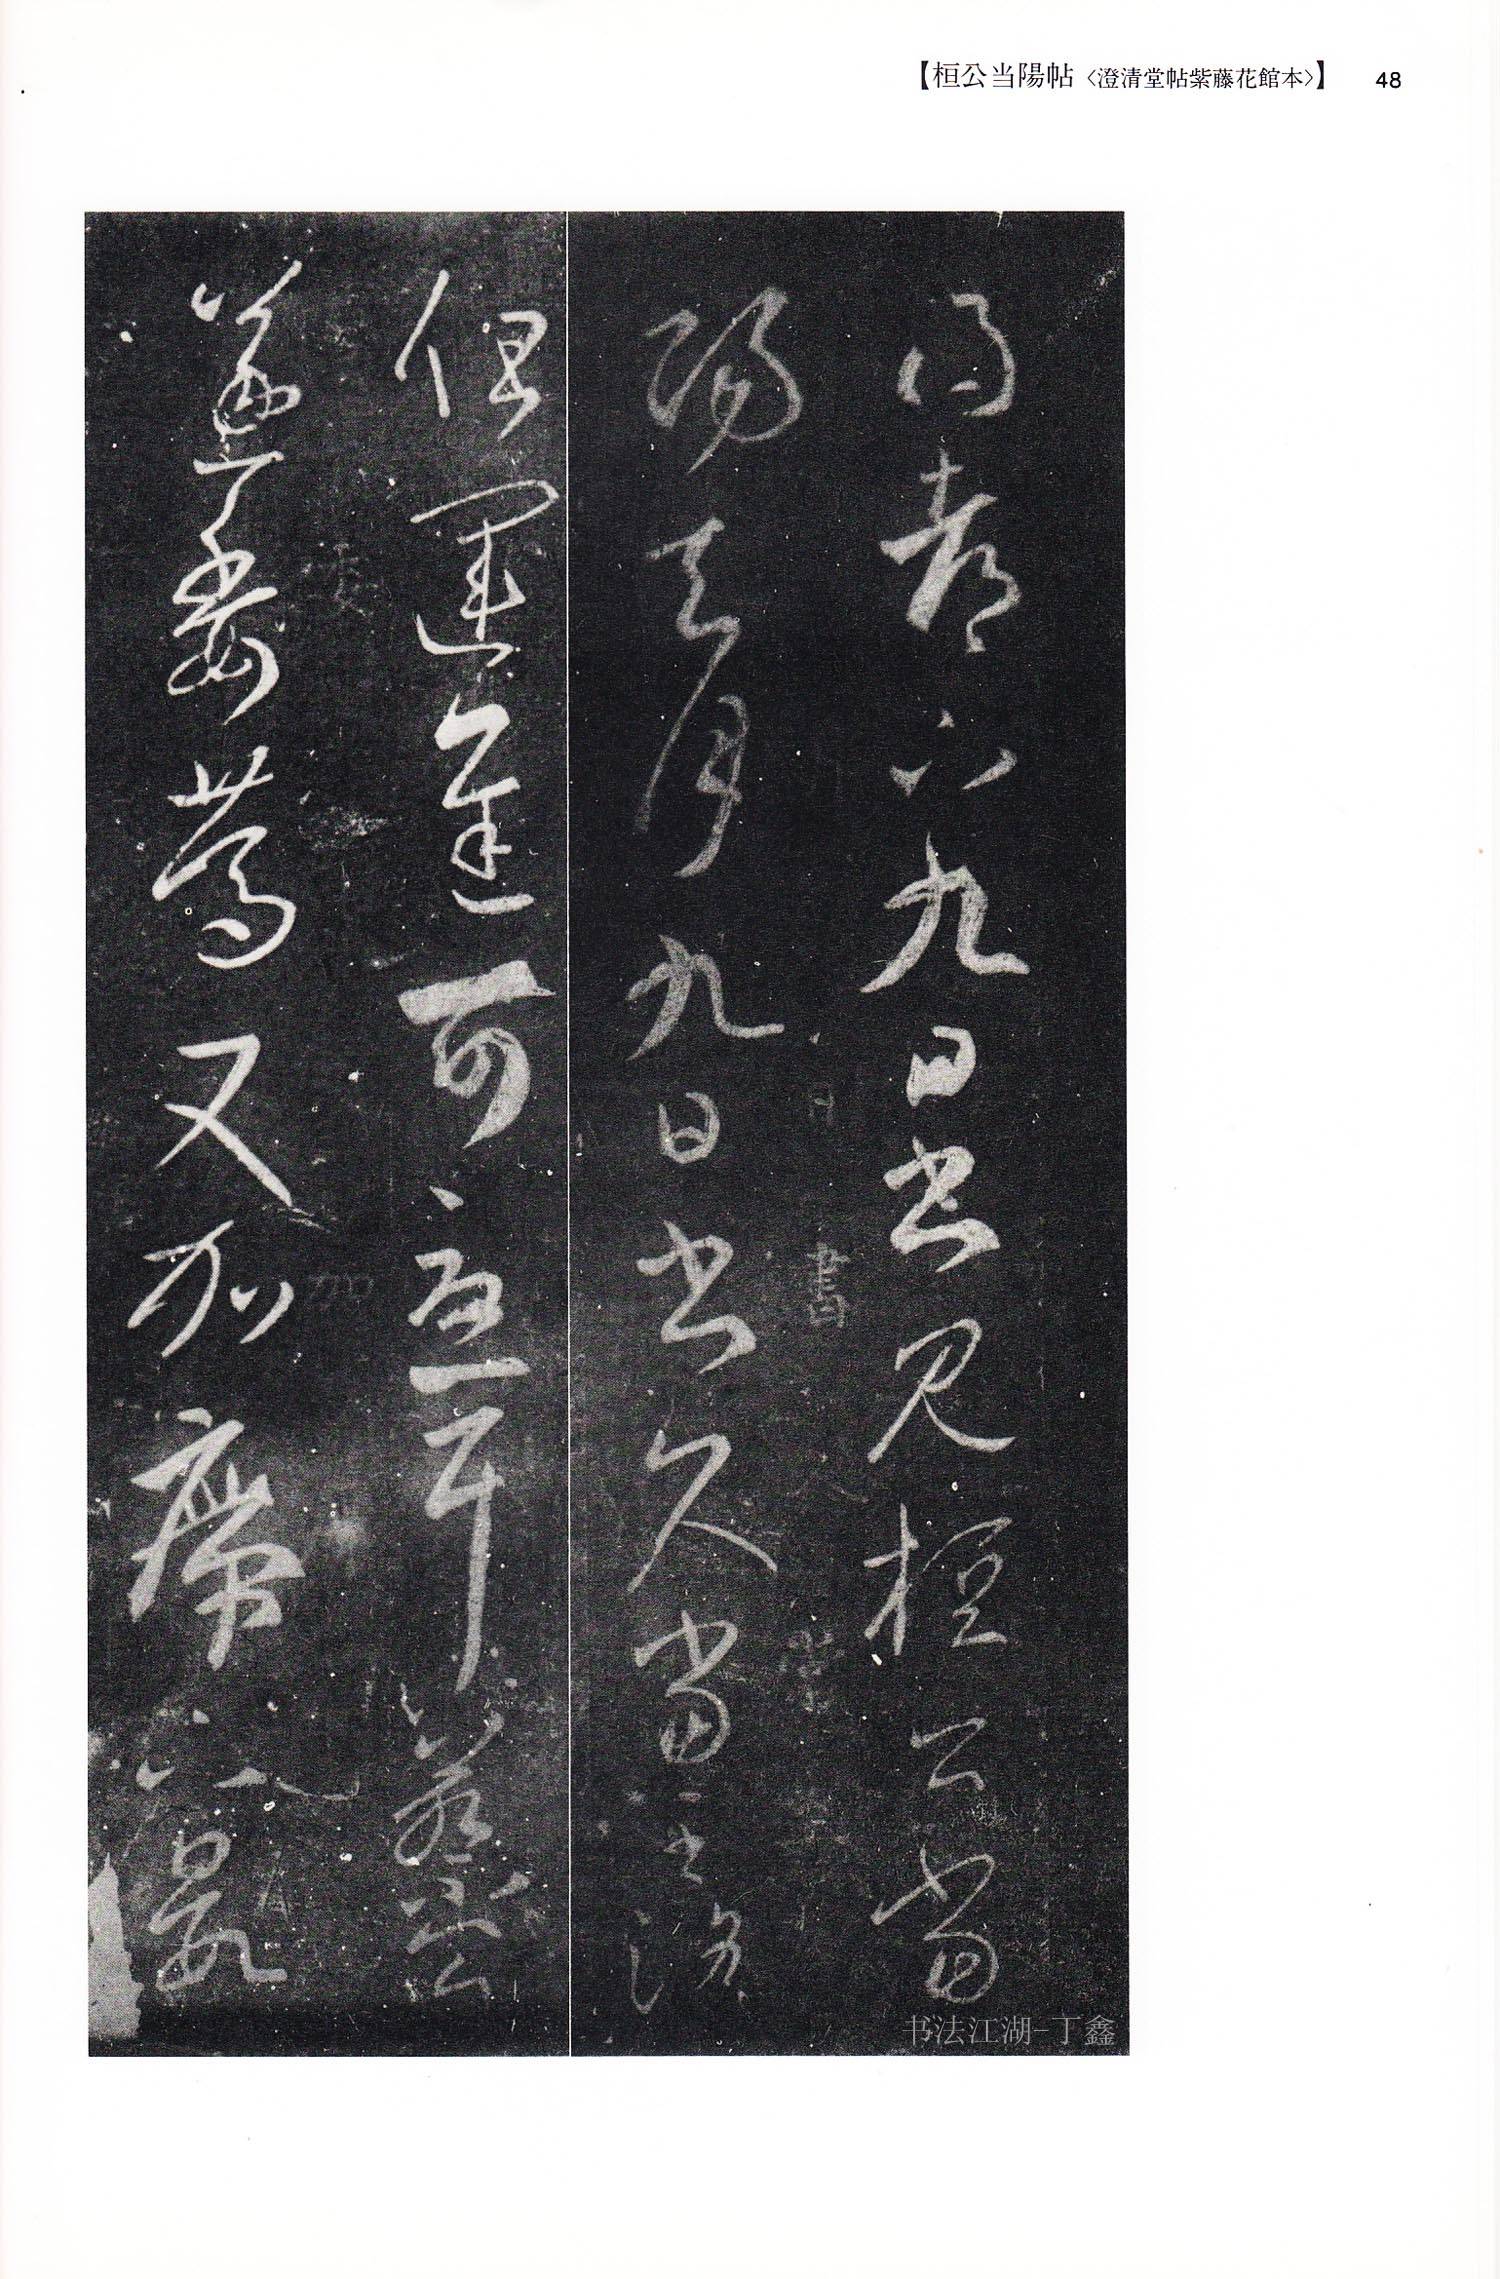 【桓公当陽帖〈澄清堂帖紫藤花館本〉】 48
得都下九日書見桓公當
陽去月九日書久當至洛
但運遲可憂耳蔡公
遂委篤又加廗下日數
日
書
书法江湖-丁鑫